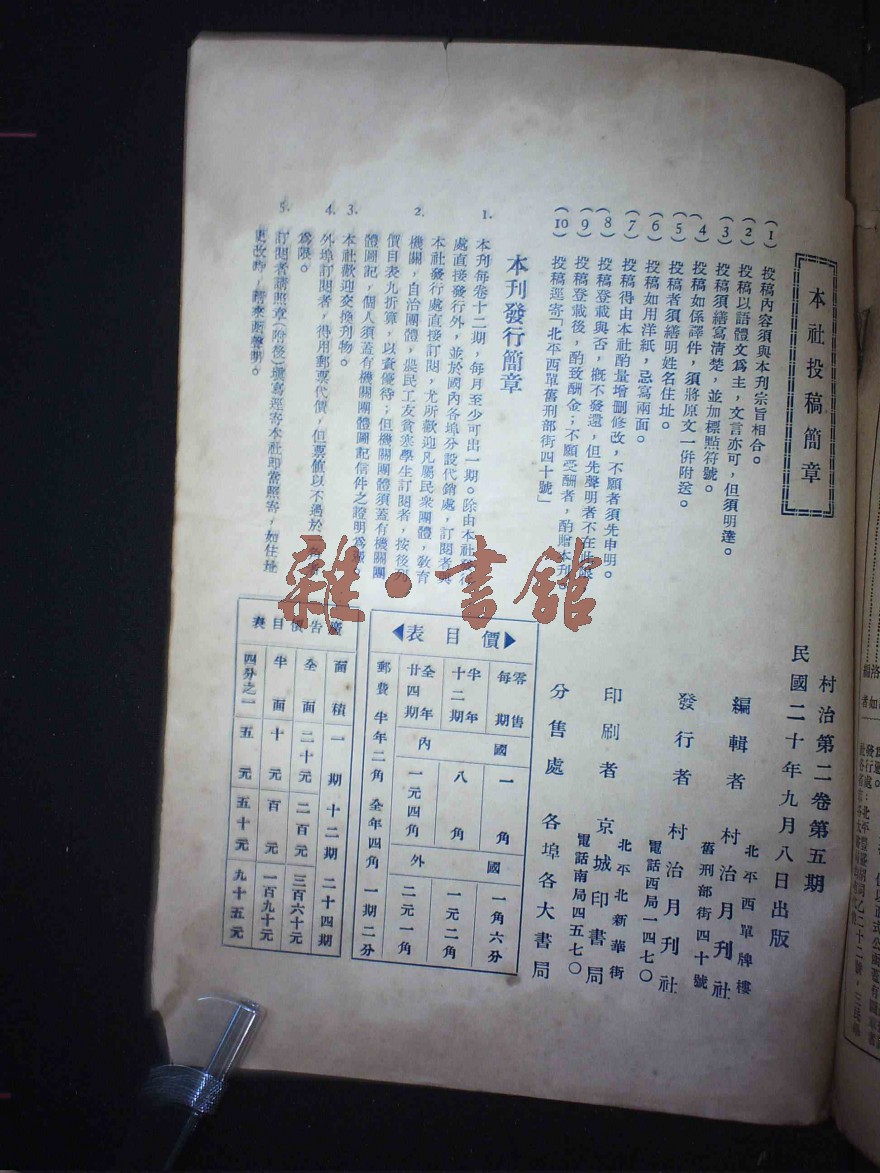 本社投稿簡章
(1) 投稿內容須與本刊宗旨相合。
(2) 投稿以語體文爲主,文言亦可,但須明達。
(3) 投稿須繕寫清楚,並加標點符號。
(4) 投稿如係譯件,須將原文一併附送。
(5) 投稿者須繕明姓名住址。
(6) 投稿如用洋紙,忌寫兩面。
(7) 投稿得由本社酌量增删修改,不願者須先申明。
(8) 投稿登載與否,概不發還,但先聲明者不在此限
(9) 投稿登載後,酌致酬金;不願受酬者,酌贈本刊
(10) 投稿逕寄「北平西單舊刑部街四十號」
本刊發行簡章
1. 本刊每卷十二期,每月至少可出一期。除由本社
處直接發行外,並於國內各埠分設代銷處,訂閱者
本社發行處直接訂閱,尤所歡迎
2. 凡屬民衆團體,教育
機關,自治團體,農民工友貧寒學生訂閱者,按後列
價目表九折算,以資優待;但機關團體須蓋有機關團
體圖記,個人須蓋有機關團體圖記信件之證明爲
3. 本社歡迎交換刊物。
4. 外埠訂閱者,得用郵票代價,但票值以不過於
爲限。
5. 訂閱者請照章(附後)填寫逕寄本社即當照寄,如住址
更改時,請來函聲明。
村治第二卷第五期
民國二十年九月八日出版
編輯者 村治月刊社
北平西單牌樓
舊刑部街四十號
發行者 村治月刊社
電話西局一四七〇
印刷者 京城印書局
北平北新華街
電話南局四五七〇
分售處 各埠各大書局
價目表
零售每期 半年十二期 全年廿四期 郵費
國內 一角 八角 一元四角 半年二角 全年四角
國外 一角六分 一元二角 二元一角 一期二分
廣告價目表
面積 一期 十二期 二十四期
全面 二十元 二百元 三百六十元
半面 十元 百元 一百九十元
四分之一 五元 五十元 九十五元
雜·書館